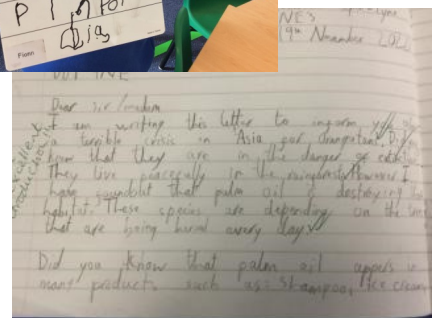 P I n for
Dias
NE's
19th November 202
Dear sir/madam
I am writing this letter to inform you
a terrible crisis in Asia for Orangutans. Did
know that they are in the danger of
They live peacefully in the rainforests. However I
have foundout that palm oil is destroying
habitat. These species are depending on the trees
that are being burnt every day.
excellent
introduction
Did you know that palm oil appers in
many products such as: Shampoo, Ice cream